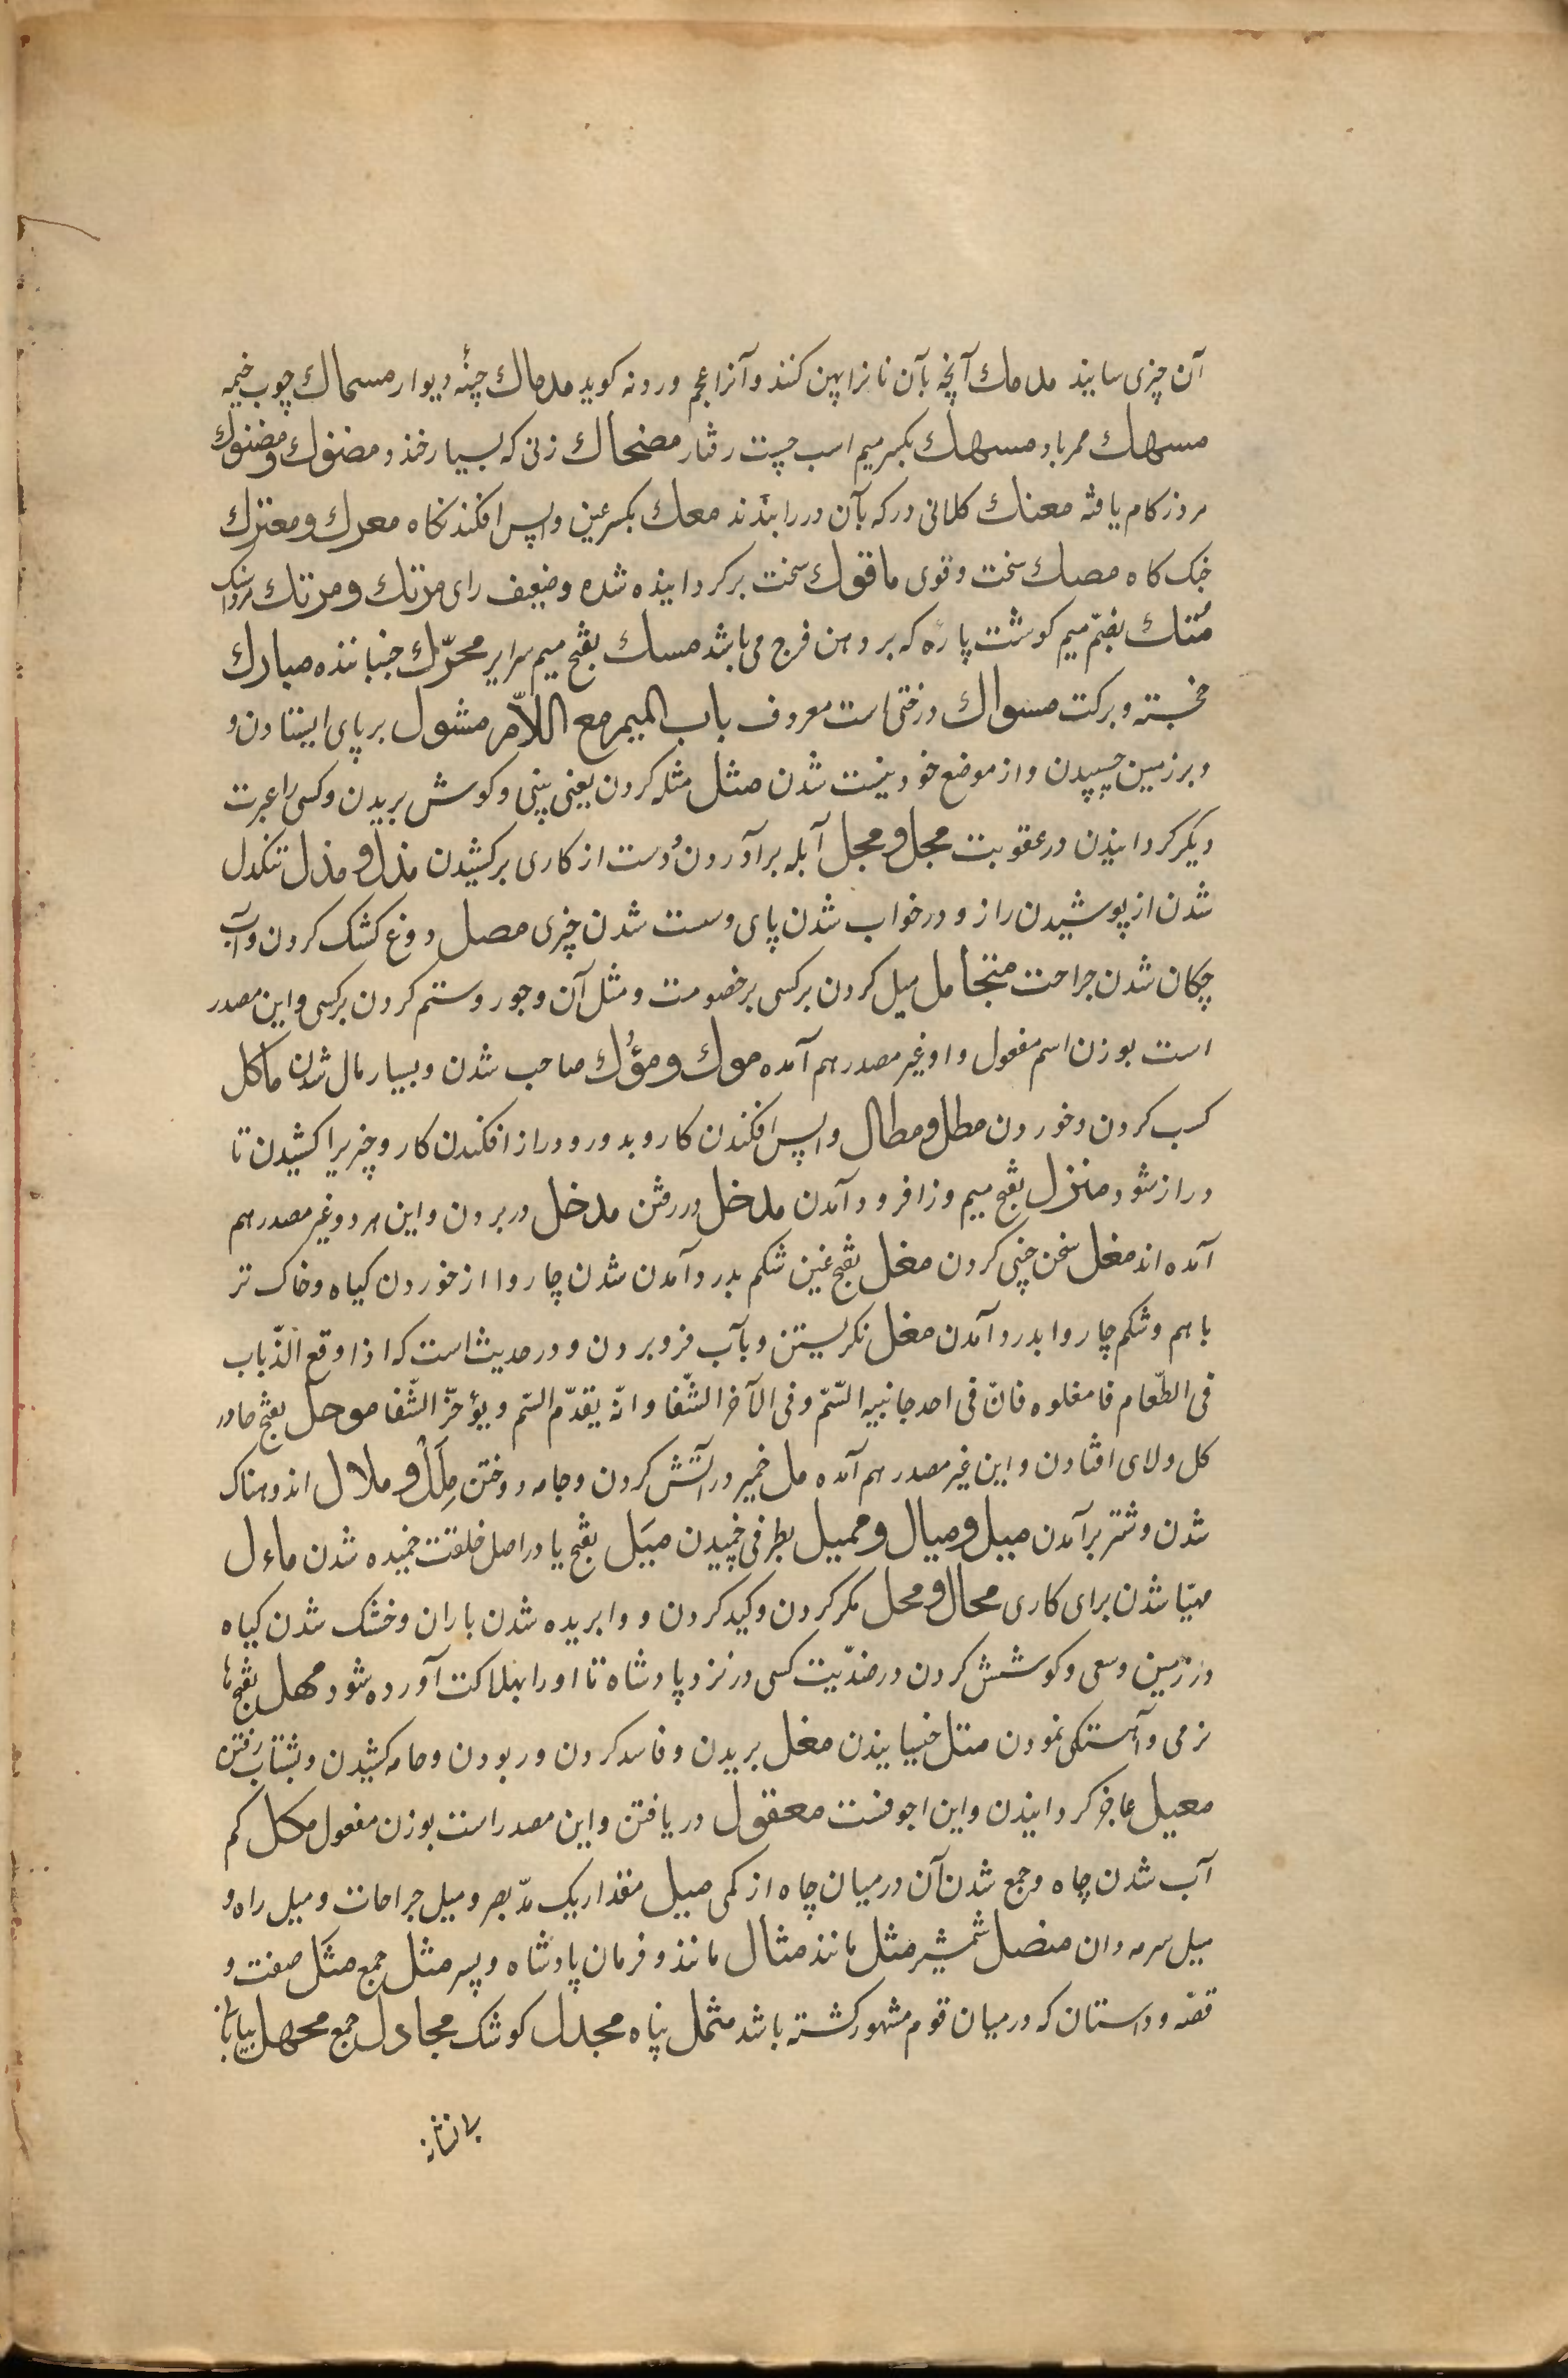 آن چیزی سایند مدمك آنچه بآن نانرا پهن کنند و آنرا عجم وردنه کوید مدماك چنهٔ دیوار مسماك چوب خیمه
مسهك ممر باد مسهك بکسر میم اسب چست رفتار مضحاك زنی که بسیار خندد مضئوك و مضنوك
مرد زکام یافته معنك کلانی در که بآن در را بندند معك بکسر عین واپس افکند نکاه معرك و معترك
جنک کاه مصك سخت و قوی مافوك سخت برکردانیده شده و ضعیف رای مرتك و مرتك مرداسنک
مُتك بضمّ میم کوشت پارهٔ که بر دهن فرج می باشد مسك بفتح میم سرایر محرّك جنبانده مبارك
خجسته و برکت مسواك درختی است معروف باب المیم مع اللاّم مثول بر پای ایستادن و
و بر زمین چسپیدن و از موضع خود نیست شدن مثل مثله کردن یعنی بینی و کوش بریدن و کسی را عبرت
دیکر کردانیدن در عقوبت مجل و مجل آبله برآوردن دست از کاری برکشیدن مذل و مذل تنکدل
شدن از پوشیدن راز و در خواب شدن پای و سست شدن چیزی مصل دوغ کشک کردن و آب
چکان شدن جراحت متحامل میل کردن بر کسی بر خصومت و مثل آن و جور و ستم کردن بر کسی و این مصدر
است بوزن اسم مفعول و او غیر مصدر هم آمده مول و مؤل صاحب شدن و بسیار مال شدن ماکل
کسب کردن و خوردن مطل و مطال واپس افکندن کار و بدور و دراز افکندن کار و چیزیرا کشیدن تا
دراز شود منزل بفتح میم و زا فرود آمدن مدخل در رفتن مدخل در بردن و این هر دو غیر مصدر هم
آمده اند مغل سخن چینی کردن مغل بفتح غین شکم بدرد آمدن شدن چاروا از خوردن کیاه و خاک تر
با هم و شکم چاروا بدرد آمدن مغل نکریستن و بآب فرو بردن و در حدیث است که اذا وقع الذّباب
فی الطّعام فامغلوه فانّ فی احد جانبیه السّمّ و فی الآخر الشّفا و انّه یقدّم السّم و یؤخرّ الشّفا موحل بفتح حا در
کل و لای افتادن و این غیر مصدر هم آمده مل خمیر در آتش کردن و جامه دوختن مِلَل و ملال اندوهناک
شدن و شتر برآمدن میل و میال و ممیل بطرفی خمیدن میَل بفتح یا در اصل خلقت خمیده شدن ماءل
مهیّا شدن برای کاری محال و محل مکر کردن و کید کردن و وابریده شدن باران و خشک شدن کیاه
در زمین و سعی و کوشش کردن در ضدّیت کسی در نزد پادشاه تا او را بهلاکت آورده شود مهل بفتح ها
نرمی و آهستکی نمودن متل جنبانیدن مغل بریدن و فاسد کردن و ربودن و جامه کشیدن و بشتاب رفتن
معیل عاجز کردانیدن و این اجوفست معقول دریافتن و این مصدر است بوزن مفعول مکل کم
آب شدن چاه و جمع شدن آن در میان چاه از کمی میل مقدار یک مدّ بصر و میل جراحات و میل راه و
میل سرمه دان منصل شمشیر مثل مانند مثال مانند و فرمان پادشاه و پسر مثل جمع مثل صفت و
قصّه و داستان که در میان قوم مشهور کشته باشد مثمل پناه مجدل کوشک مجادل جمع مجهل بیابان
بی نشانه